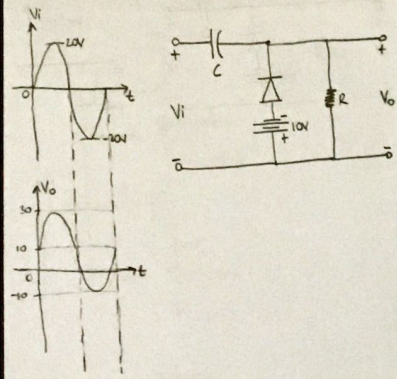 Vi
20V
0
t
-20V
Vo
30
10
0
t
-10
+
C
+
Vi
-
+
10V
R
Vo
-
-